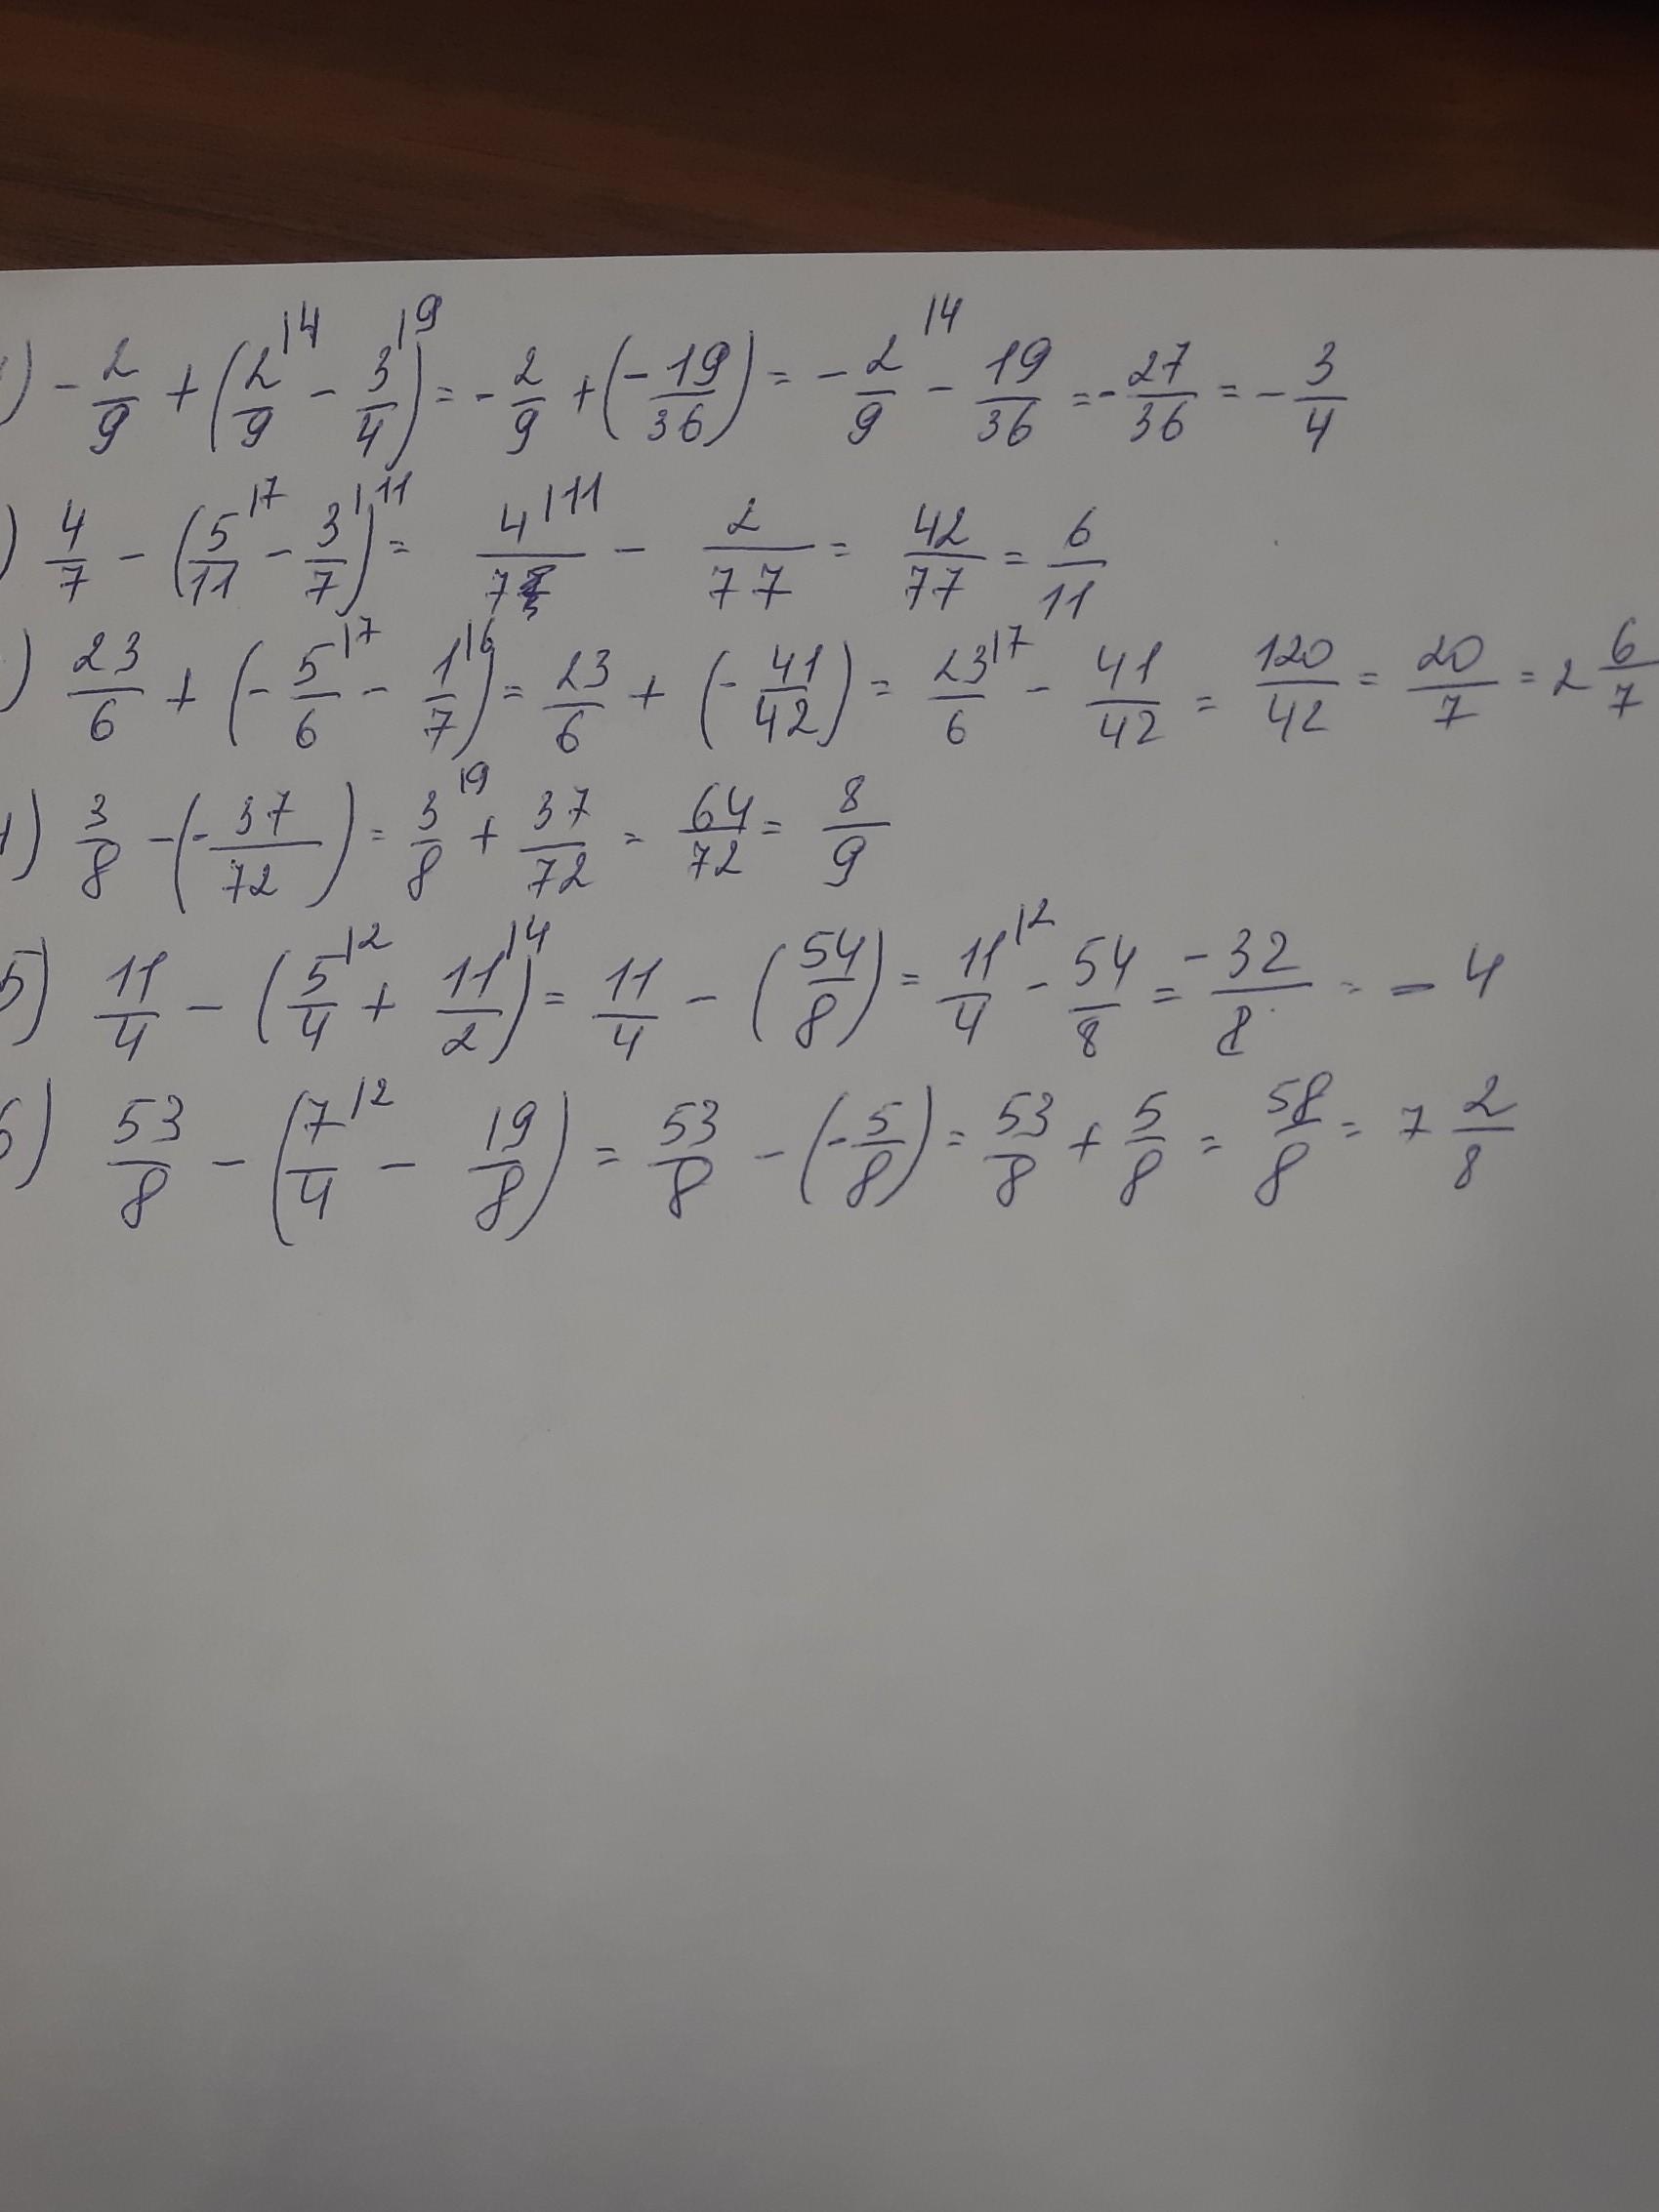 ) - 2/9 + (2/9 |4 - 3/4 |9) = - 2/9 + (- 19/36) = - 2/9 |4 - 19/36 = - 27/36 = - 3/4
) 4/7 - (5/11 |7 - 3/7 |11) = 4/7 |11 - 2/77 = 42/77 = 6/11
) 23/6 + (- 5/6 |7 - 1/7 |6) = 23/6 + (- 41/42) = 23/6 |7 - 41/42 = 120/42 = 20/7 = 2 6/7
) 3/8 - (- 37/72) = 3/8 |9 + 37/72 = 64/72 = 8/9
5) 11/4 - (5/4 |2 + 11/2 |4) = 11/4 - (54/8) = 11/4 |2 - 54/8 = -32/8 = - 4
6) 53/8 - (7/4 |2 - 19/8) = 53/8 - (- 5/8) = 53/8 + 5/8 = 58/8 = 7 2/8